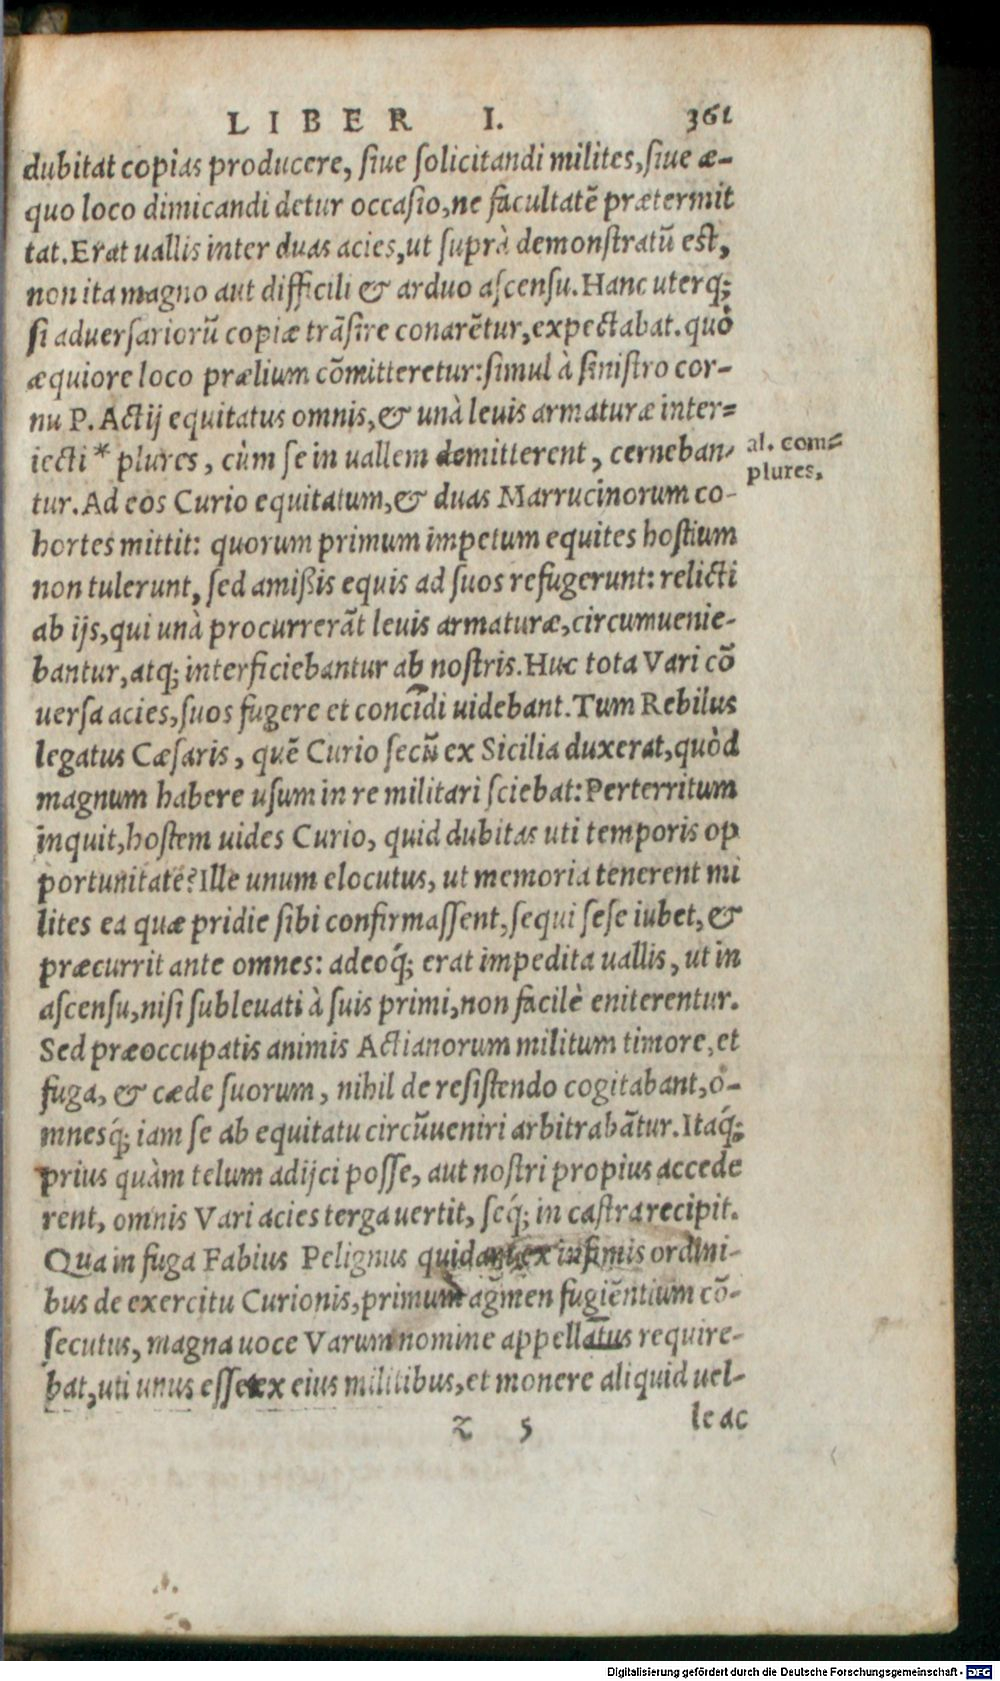 LIBER I. 361
dubitat copias producere, siue solicitandi milites, siue æ-
quo loco dimicandi detur occasio, ne facultatē prætermit
tat. Erat uallis inter duas acies, ut suprà demonstratū est,
non ita magno aut difficili & arduo ascensu. Hanc uterq;
si aduersariorū copiæ trāsire conarētur, expectabat. quò
æquiore loco prælium cōmitteretur: simul à sinistro cor-
nu P. Actij equitatus omnis, & unà leuis armaturæ inter-
iecti * plures, cùm se in uallem demitterent, cerneban-
al. com-
plures.
tur. Ad eos Curio equitatum, & duas Marrucinorum co-
hortes mittit: quorum primum impetum equites hostium
non tulerunt, sed amißis equis ad suos refugerunt: relicti
ab ijs, qui unà procurrerāt leuis armaturæ, circumuenie-
bantur, atq; interficiebantur ab nostris. Huc tota Vari cō
uersa acies, suos fugere et concidi uidebant. Tum Rebilus
legatus Cæsaris, quē Curio secū ex Sicilia duxerat, quòd
magnum habere usum in re militari sciebat: Perterritum
inquit, hostem uides Curio, quid dubitas uti temporis op
portunitate? Ille unum elocutus, ut memoria tenerent mi
lites ea quæ pridie sibi confirmassent, sequi sese iubet, &
præcurrit ante omnes: adeoq́; erat impedita uallis, ut in
ascensu, nisi subleuati à suis primi, non facilè eniterentur.
Sed præoccupatis animis Actianorum militum timore, et
fuga, & cæde suorum, nihil de resistendo cogitabant, o-
mnesq́; iam se ab equitatu circūueniri arbitrabātur. Itaq́;
prius quàm telum adijci posse, aut nostri propius accede
rent, omnis Vari acies terga uertit, seq́; in castra recipit.
Qua in fuga Fabius Pelignus quidam ex infimis ordini-
bus de exercitu Curionis, primum agmen fugientium cō-
secutus, magna uoce Varum nomine appellatus require-
bat, uti unus esset ex eius militibus, et monere aliquid uel-
z 5 le ac
Digitalisierung gefördert durch die Deutsche Forschungsgemeinschaft - DFG